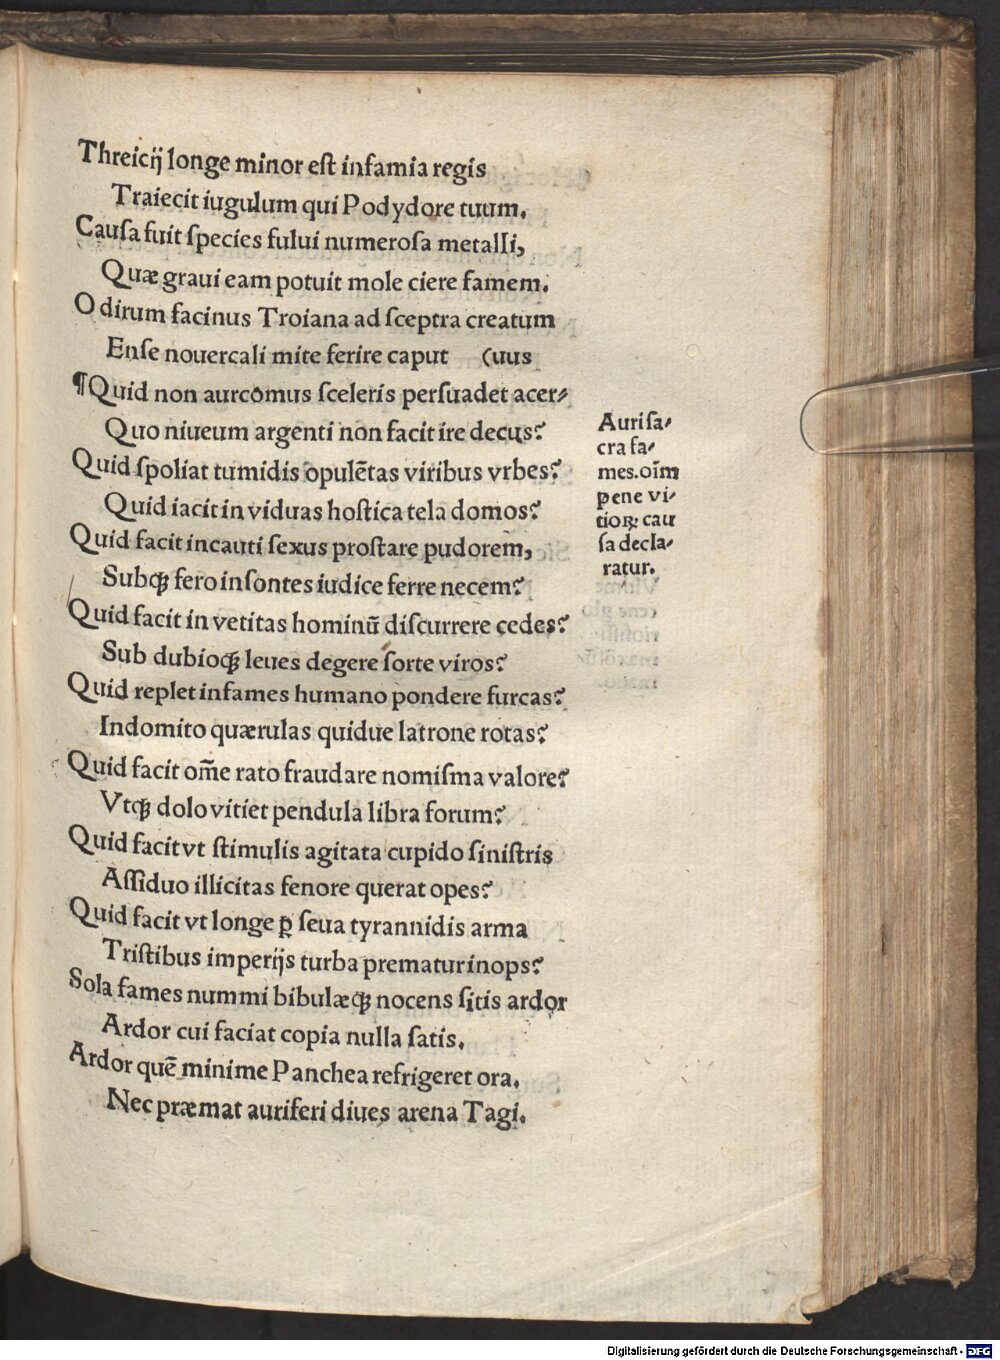 Threicij longe minor eſt infamia regis
Traiecit iugulum qui Podydore tuum.
Cauſa fuit ſpecies fului numeroſa metalli,
Quæ graui eam potuit mole ciere famem.
O dirum facinus Troiana ad ſceptra creatum
Enſe nouercali mite ferire caput (uus
¶Quid non aurcomus ſceleris perſuadet acer⸗
Quo niueum argenti non facit ire decus?
Quid ſpoliat tumidis opulētas viribus vrbes?
Quid iacit in viduas hoſtica tela domos?
Quid facit incauti ſexus proſtare pudorem,
Subqꝫ fero inſontes iudice ferre necem?
Quid facit in vetitas hominū diſcurrere cedes?
Sub dubioqꝫ leues degere ſorte viros?
Quid replet infames humano pondere furcas?
Indomito quærulas quidue latrone rotas?
Quid facit om̄e rato fraudare nomiſma valore?
Vtqꝫ dolo vitiet pendula libra forum?
Quid facit vt ſtimulis agitata cupido ſiniſtris
Aſſiduo illicitas fenore querat opes?
Quid facit vt longe ꝑ ſeua tyrannidis arma
Triſtibus imperijs turba prematur inops?
Sola fames nummi bibulæqꝫ nocens ſitis ardor
Ardor cui faciat copia nulla ſatis.
Ardor quē minime Panchea refrigeret ora.
Nec præmat auriferi diues arena Tagi.
Auri ſa⸗
cra fa⸗
mes.oīm
pene vi⸗
tioꝝ cau
ſa decla⸗
ratur.
Digitalisierung gefördert durch die Deutsche Forschungsgemeinschaft - DFG